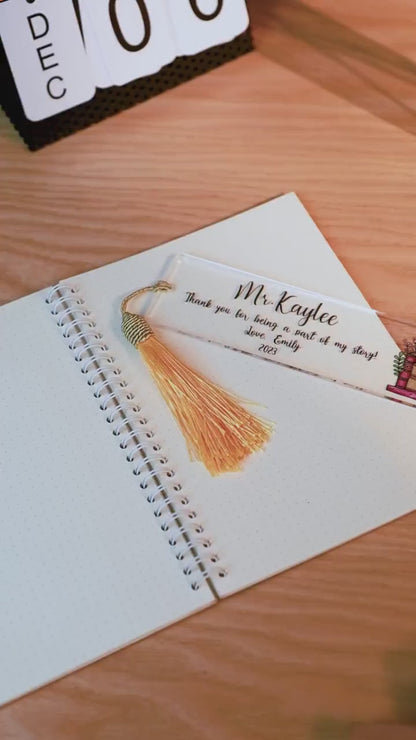 DEC
00
Mr. Kaylee
Thank you for being a part of my story!
Love, Emily
2023